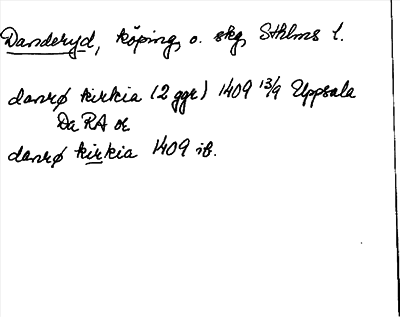 Danderyd, köping, o. skg, Sthlms l.
danrø kirkia (2 ggr) 1409 13/9 Uppsala
Da RA or
danrø kirkia 1409 ib.